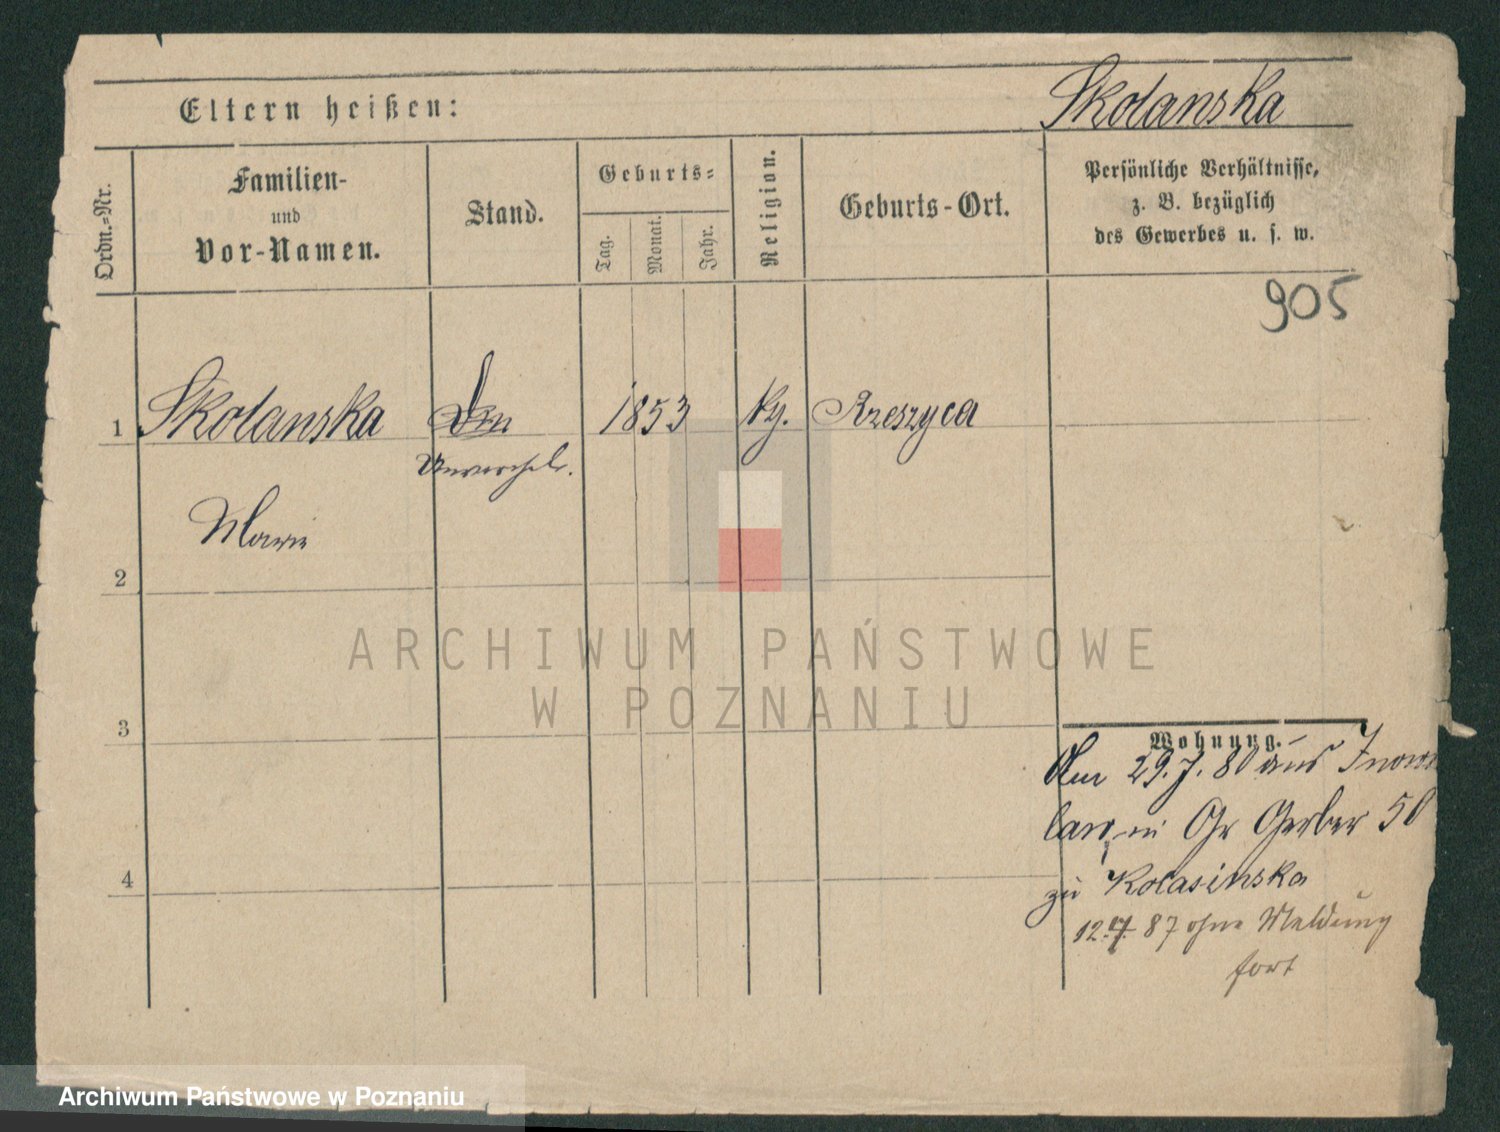 Eltern heißen:
Skolanska
Ordn.-Nr.
Familien-
und
Vor-Namen.
Stand.
Geburts-
Tag.
Monat.
Jahr.
Religion.
Geburts-Ort.
Persönliche Verhältnisse,
z. B. bezüglich
des Gewerbes u. s. w.
905
1 Skolanska 1853 Rzeszyca
Marie
2
3
4
ARCHIWUM PAŃSTWOWE
W POZNANIU
Wohnung.
Am 29.7.80 aus Inowr
law in Gr Gerber 50
zu Kolasinska
12.7. 87 ohne Meldung
fort
Archiwum Państwowe w Poznaniu